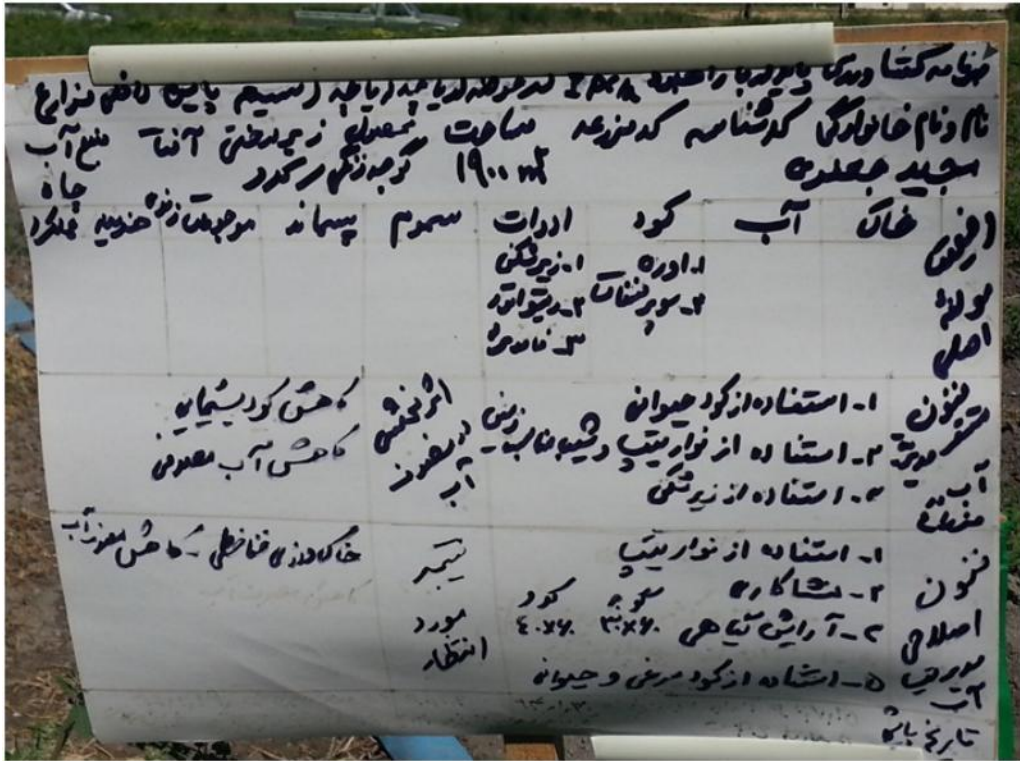 برنامه کشاورزی پایدار با رهیافت IPM در حوضه دریاچه ارومیه
نام و نام خانوادگی کد شناسه کد مزرعه مساحت محصول زیر درختی آفت منبع آب
مجید جعفری ۱۹۰۰ m² گوجه فرنگی چاه
خاک آب کود ادوات سموم پسماند موجودات زنده هزینه عملکرد
مولفه اصلی
۱. اوره
۲- سوپر فسفات
۱. زیرشکن
۲- کولتیواتور
۳-
فنون
مدیریت آب
مزرعه
۱- استفاده از کود حیوانی
۲- استفاده از نوار تیپ و شیب مناسب زمین
۳- استفاده از زیرشکن
اثر بخشی
در مصرف
آب
کاهش کود شیمیایی
کاهش آب مصرفی
فنون
اصلاحی
مدیریت
آب
۱- استفاده از نوار تیپ
۲- نشاکاری
۳- آرایش گیاهی گوجه ۳۰×۶۰ کود ۴۰×۶۰
۵- استفاده از کود مرغی و حیوانی
نتیجه
مورد
انتظار
خاک‌ورزی حفاظتی - کاهش مصرف آب
تاریخ بازدید